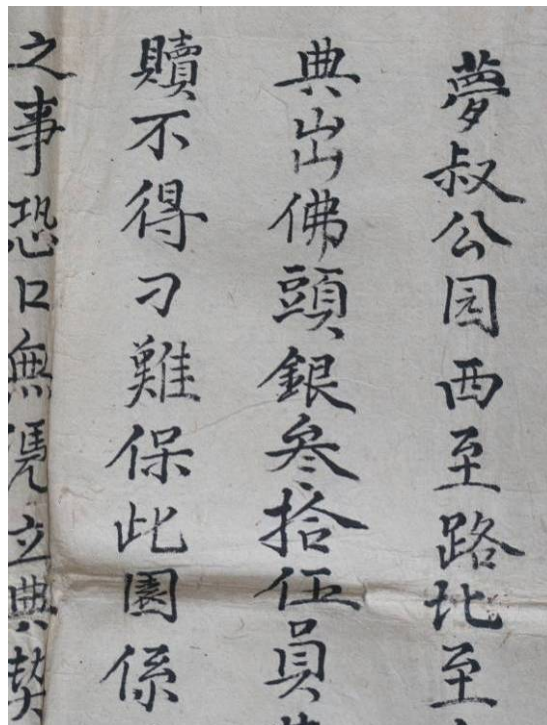 夢叔公园西至路北至
典出佛頭銀叁拾伍員
贖不得刁難保此園係
之事恐口無凴立典契